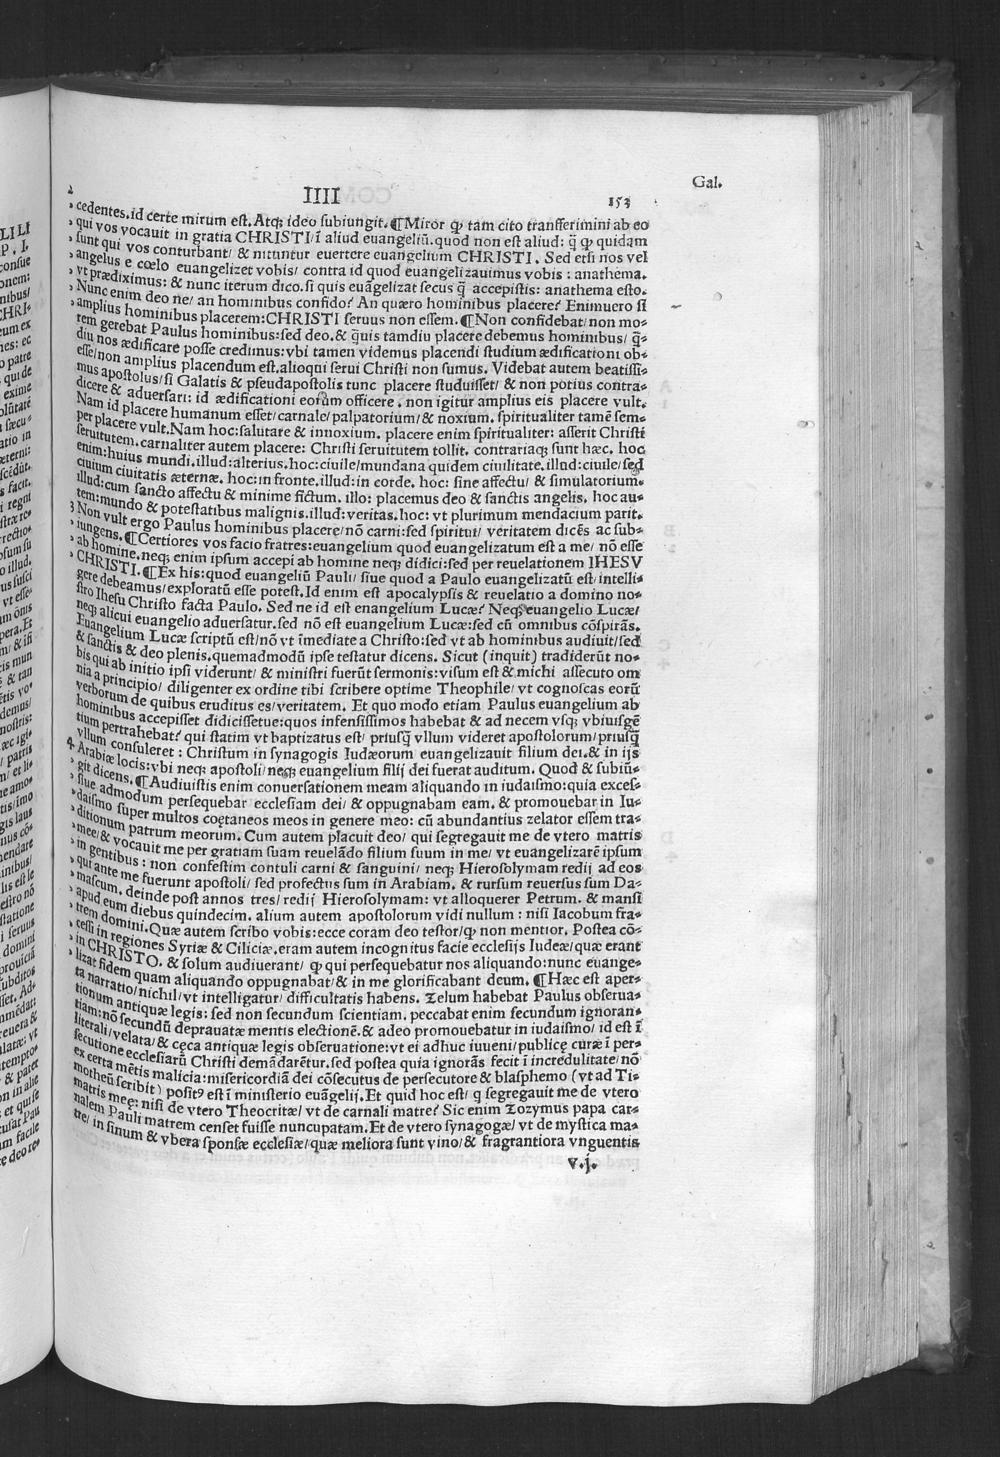 Gal.
IIII
153
2
cedentes.id certe mirum est. Atq; ideo subiungit.¶Miror ꝙ tam cito transferimini ab eo
qui vos vocauit in gratia CHRISTI/ī aliud euangeliū.quod non est aliud: q̄ ꝙ quidam
sunt qui vos conturbant/ & nituntur euertere euangelium CHRISTI. Sed etsi nos vel
angelus e cœlo euangelizet vobis/ contra id quod euangelizauimus vobis : anathema.
vt prædiximus: & nunc iterum dico.si quis euāgelizat secus q̄ accepistis: anathema esto.
Nunc enim deo ne/ an hominibus confido? An quæro hominibus placere? Enimuero si
amplius hominibus placerem:CHRISTI seruus non essem.¶Non confidebat/ non mo-
rem gerebat Paulus hominibus:sed deo.& q̄uis tamdiu placere debemus hominibus/ q̄-
diu nos ædificare posse credimus:vbi tamen videmus placendi studium ædificationi ob-
esse/non amplius placendum est.alioqui serui Christi non sumus. Videbat autem beatissi-
mus apostolus/ si Galatis & pseudapostolis tunc placere studuisset/ & non potius contra-
dicere & aduersari: id ædificationi eorūm officere . non igitur amplius eis placere vult.
Nam id placere humanum esset/ carnale/ palpatorium/ & noxium. spiritualiter tamē sem-
per placere vult.Nam hoc:salutare & innoxium. placere enim spiritualiter: asserit Christi
seruitutem.carnaliter autem placere: Christi seruitutem tollit. contrariaq; sunt hæc. hoc
enim:huius mundi.illud:alterius.hoc:ciuile/mundana quidem ciuilitate.illud:ciuile/sed
ciuium ciuitatis æternæ. hoc:in fronte.illud:in corde. hoc: sine affectu/ & simulatorium.
illud:cum sancto affectu & minime fictum. illo: placemus deo & sanctis angelis. hoc au-
tem:mundo & potestatibus malignis.illud:veritas.hoc: vt plurimum mendacium parit.
3 Non vult ergo Paulus hominibus placere/nō carni:sed spiritui/ veritatem dicēs ac sub-
iungens.¶Certiores vos facio fratres:euangelium quod euangelizatum est a me/ nō esse
ab homine.neq; enim ipsum accepi ab homine neq; didici:sed per reuelationem IHESV
CHRISTI.¶Ex his:quod euangeliū Pauli/ siue quod a Paulo euangelizatū est/ intelli-
gere debeamus/exploratū esse potest.Id enim est apocalypsis & reuelatio a domino no-
stro Ihesu Christo facta Paulo. Sed ne id est enangelium Lucæ? Neq; euangelio Lucæ/
neq; alicui euangelio aduersatur.sed nō est euangelium Lucæ:sed cū omnibus cōspirās.
Euangelium Lucæ scriptū est/nō vt īmediate a Christo:sed vt ab hominibus audiuit/sed
& sanctis & deo plenis.quemadmodū ipse testatur dicens. Sicut (inquit) tradiderūt no-
bis qui ab initio ipsi viderunt/ & ministri fuerūt sermonis:visum est & michi assecuto om
nia a principio/ diligenter ex ordine tibi scribere optime Theophile/ vt cognoscas eorū
verborum de quibus eruditus es/veritatem. Et quo modo etiam Paulus euangelium ab
hominibus accepisset didicissetue:quos infensissimos habebat & ad necem vsq; vbiusgē
tium pertrahebat? qui statim vt baptizatus est/ priusq̄ vllum videret apostolorum/priusq̄
vllum consuleret : Christum in synagogis Iudæorum euangelizauit filium dei.& in ijs
4 Arabiæ locis:vbi neq; apostoli/neq; euangelium filij dei fuerat auditum. Quod & subiū-
git dicens.¶Audiuistis enim conuersationem meam aliquando in iudaismo:quia exces-
siue admodum persequebar ecclesiam dei/ & oppugnabam eam. & promouebar in Iu-
daismo super multos coętaneos meos in genere meo: cū abundantius zelator essem tra-
ditionum patrum meorum. Cum autem placuit deo/ qui segregauit me de vtero matris
mee/ & vocauit me per gratiam suam reuelādo filium suum in me/ vt euangelizarē ipsum
in gentibus : non confestim contuli carni & sanguini/ neq; Hierosolymam redij ad eos
qui ante me fuerunt apostoli/ sed profectus sum in Arabiam. & rursum reuersus sum Da-
mascum. deinde post annos tres/ redij Hierosolymam: vt alloquerer Petrum. & mansi
apud eum diebus quindecim. alium autem apostolorum vidi nullum : nisi Iacobum fra-
trem domini.Quæ autem scribo vobis:ecce coram deo testor/ꝙ non mentior. Postea cō-
cessi in regiones Syriæ & Ciliciæ.eram autem incognitus facie ecclesijs Iudeæ/quæ erant
in CHRISTO. & solum audiuerant/ ꝙ qui persequebatur nos aliquando:nunc euange-
lizat fidem quam aliquando oppugnabat/& in me glorificabant deum. ¶Hæc est aper-
ta narratio/nichil/vt intelligatur/ difficultatis habens. Zelum habebat Paulus obserua-
tionum antiquæ legis: sed non secundum scientiam. peccabat enim secundum ignoran-
tiam:nō secundū deprauatæ mentis electionē.& adeo promouebatur in iudaismo/ id est ī
literali/velata/& cęca antiquæ legis obseruatione:vt ei adhuc iuueni/publicę curæ ī per-
secutione ecclesiarū Christi demādarētur.sed postea quia ignorās fecit ī incredulitate/nō
ex certa mētis malicia:misericordiā dei cōsecutus de persecutore & blasphemo (vt ad Ti-
motheū scribit) positꝰ est ī ministerio euāgelij.Et quid hoc est/ q segregauit me de vtero
matris meę: nisi de vtero Theocritæ/ vt de carnali matre? Sic enim Zozymus papa car-
nalem Pauli matrem censet fuisse nuncupatam.Et de vtero synagogæ/ vt de mystica ma-
tre/ in sinum & vbera sponsæ ecclesiæ/quæ meliora sunt vino/& fragrantiora vnguentis
v.j.